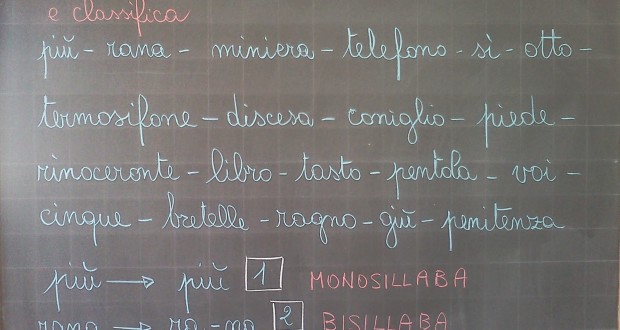 e classifica
più - rana - miniera - telefono - sì - otto -
termosifone - discesa - coniglio - piede -
rinoceronte - libro - tasto - pentola - voi -
cinque - bretelle - ragno - giù - penitenza
più → più 1 MONOSILLABA
rana → ra-na 2 BISILLABA